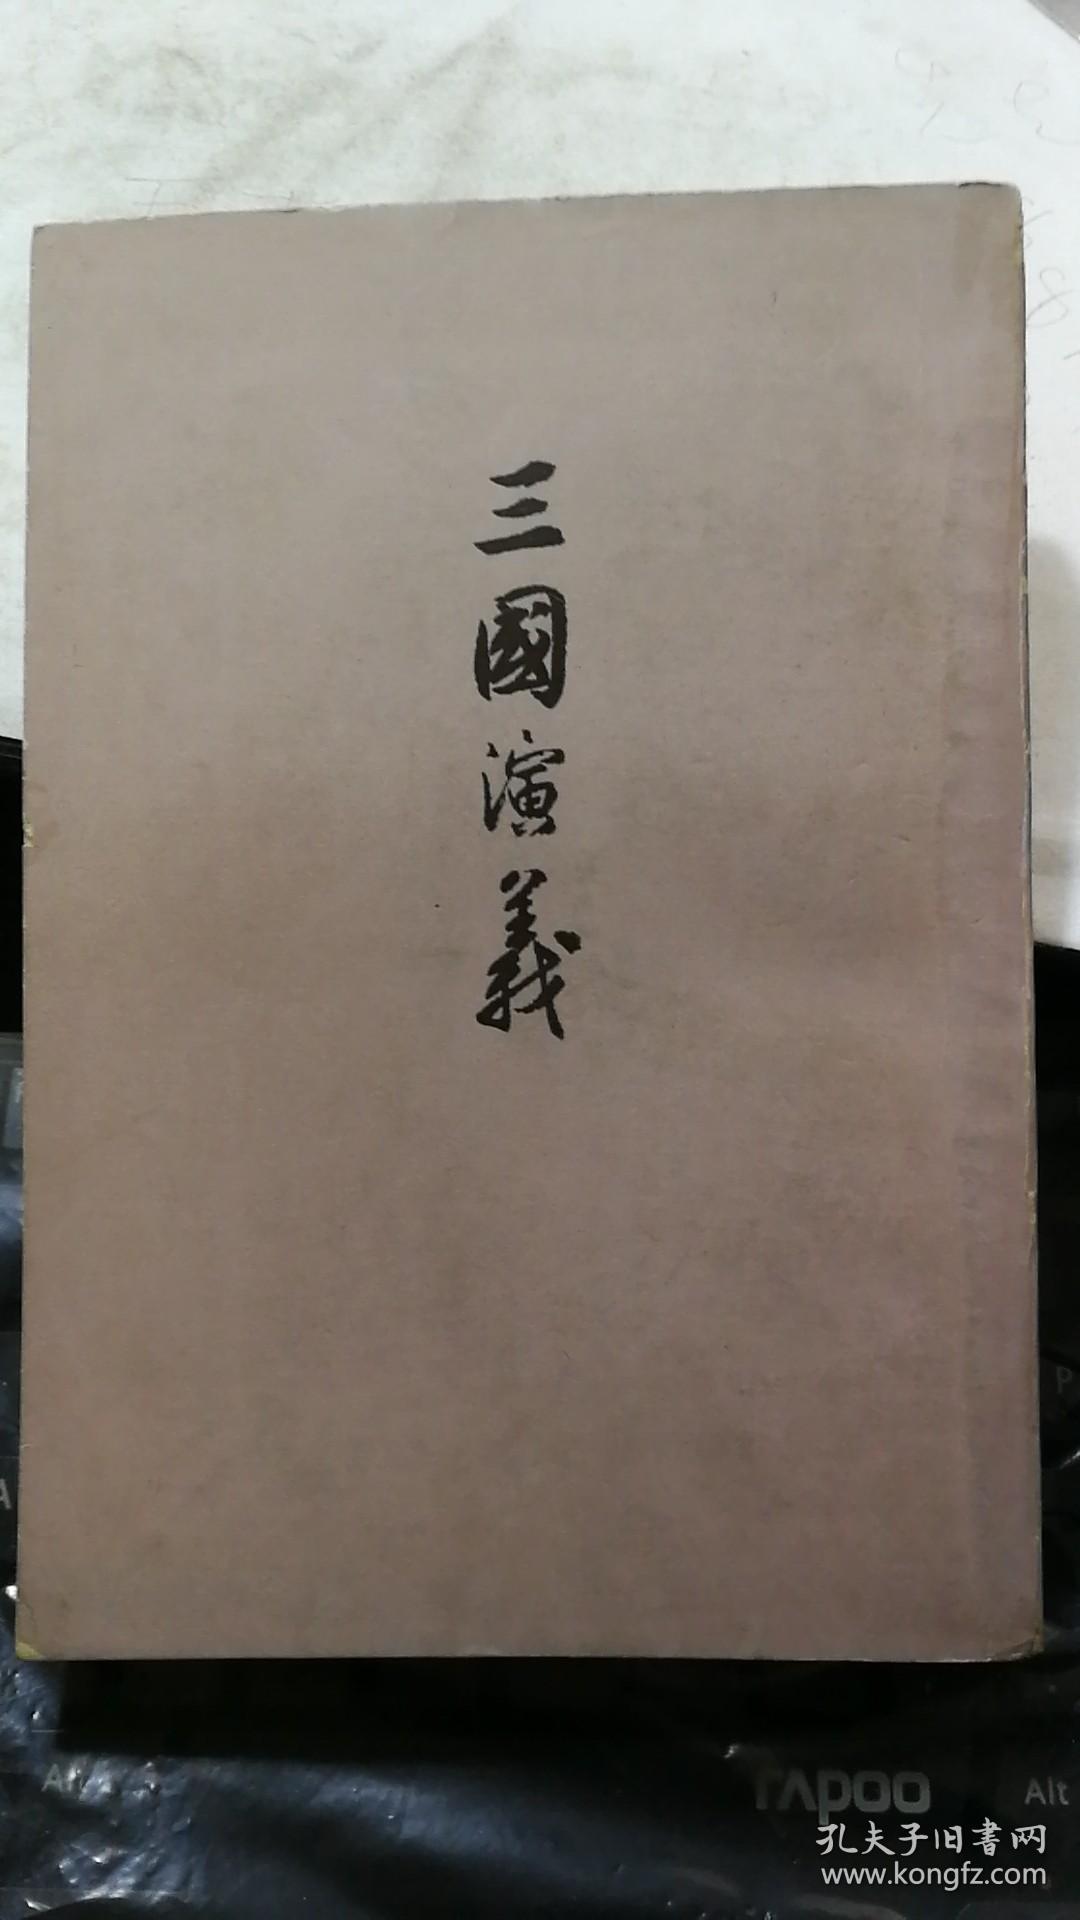 三國演義
A
P
Alt
RAPOO
Alt
孔夫子旧書网
www.kongfz.com